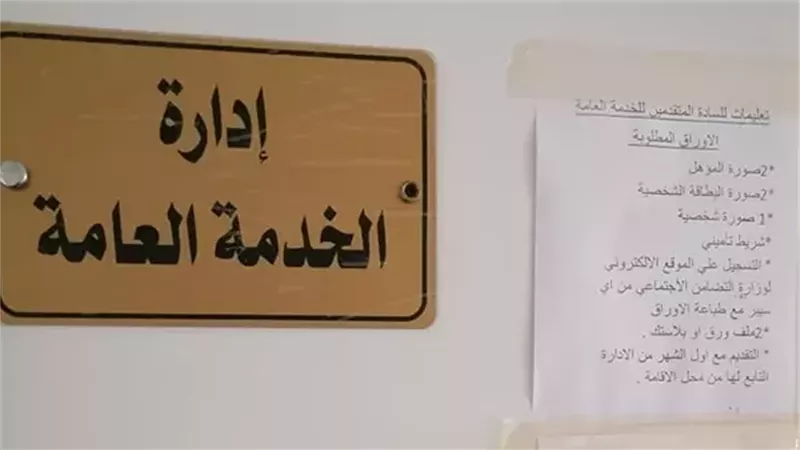 إدارة
الخدمة العامة
تعليمات للسادة المتقدمين للخدمة العامة
الاوراق المطلوبة
*2صورة المؤهل
*2صورة البطاقة الشخصية
*1 صورة شخصية
*شريط تأميني
* التسجيل علي الموقع الالكتروني
لوزارة التضامن الأجتماعي من اي
سيبر مع طباعة الاوراق
*2ملف ورق او بلاستك .
* التقديم مع اول الشهر من الادارة
التابع لها من محل الاقامة .